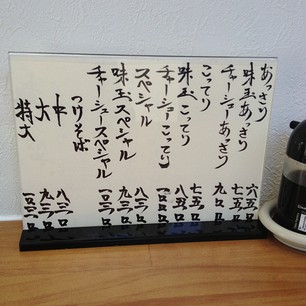 あっさり 六五〇
味玉あっさり 七五〇
チャーシューあっさり 九〇〇
こってり 七五〇
味玉こってり 八五〇
チャーシューこってり
スペシャル 八三〇
味玉スペシャル 九三〇
チャーシュースペシャル
つけそば
中 八三〇
大 九三〇
特大 一〇三〇